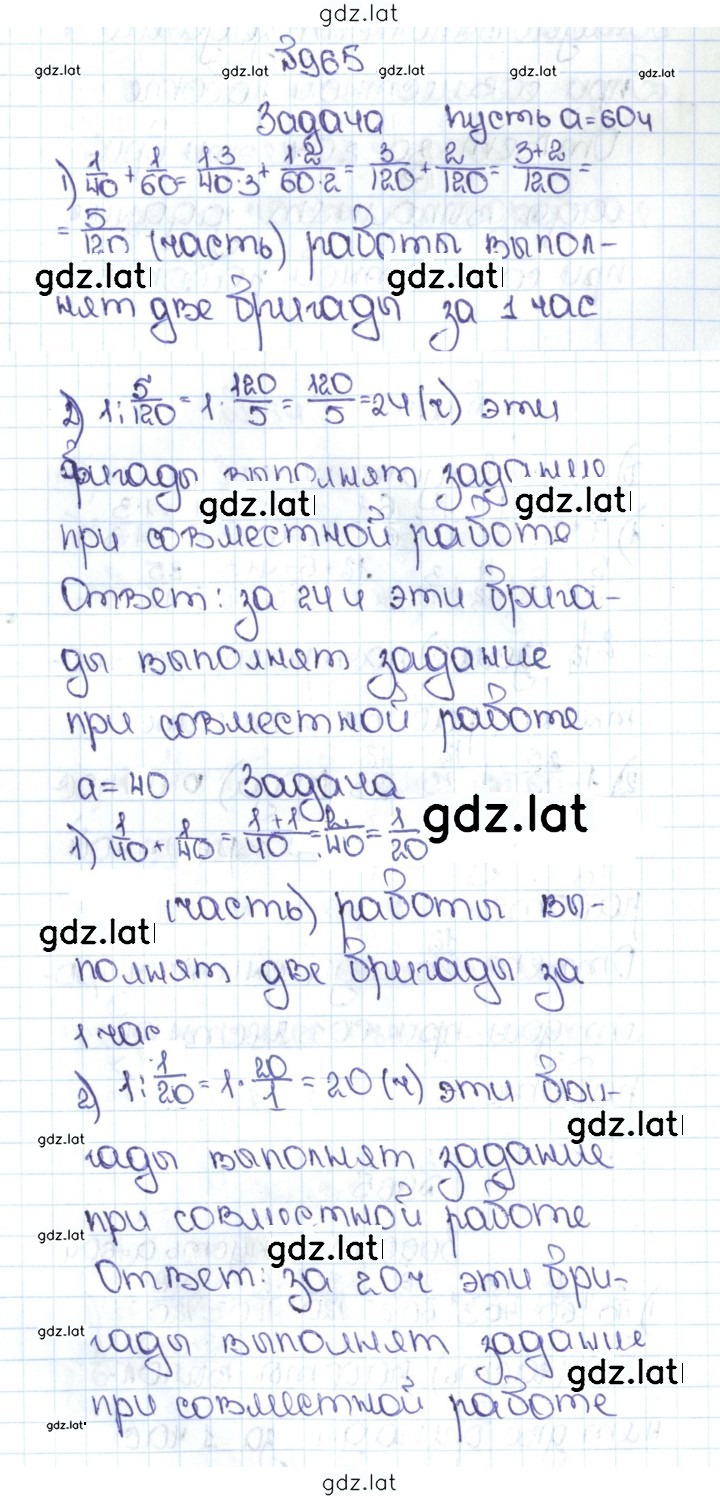 gdz.lat
№965
gdz.lat gdz.lat gdz.lat gdz.lat
Задача пусть a=60ч
1) 1/40 + 1/60 = 1·3/40·3 + 1·2/60·2 = 3/120 + 2/120 = 3+2/120 =
= 5/120 (часть) работы выпол-
gdz.lat gdz.lat
нят две бригады за 1 час
2) 1 : 5/120 = 1 · 120/5 = 120/5 = 24 (ч) эти
бригады выполнят задание
gdz.lat gdz.lat
при совместной работе
Ответ: за 24 ч эти брига-
ды выполнят задание
при совместной работе
a = 40 Задача
1) 1/40 + 1/40 = 1+1/40 = 2/40 = 1/20
gdz.lat
(часть) работы вы-
gdz.lat
полнят две бригады за
1 час
2) 1 : 1/20 = 1 · 20/1 = 20 (ч) эти бри-
gdz.lat
gdz.lat
гады выполнят задание
при совместной работе
gdz.lat gdz.lat
Ответ: за 20ч эти бри-
gdz.lat
гады выполнят задание
gdz.lat
при совместной работе
gdz.lat
gdz.lat